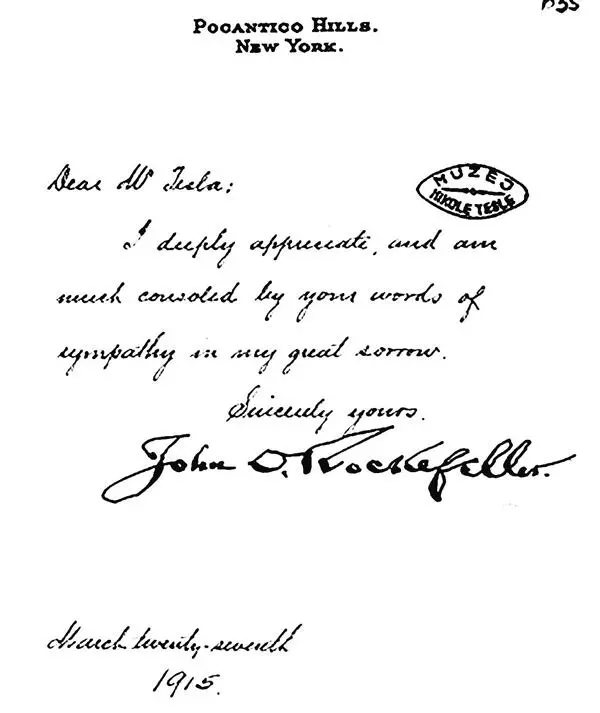 POCANTICO HILLS.
NEW YORK.
Dear Mr Tesla:
MUZEJ
NIKOLE TESLE
I deeply appreciate, and am
much consoled by your words of
sympathy in my great sorrow.
Sincerely yours.
John D. Rockefeller.
March twenty-seventh
1915.